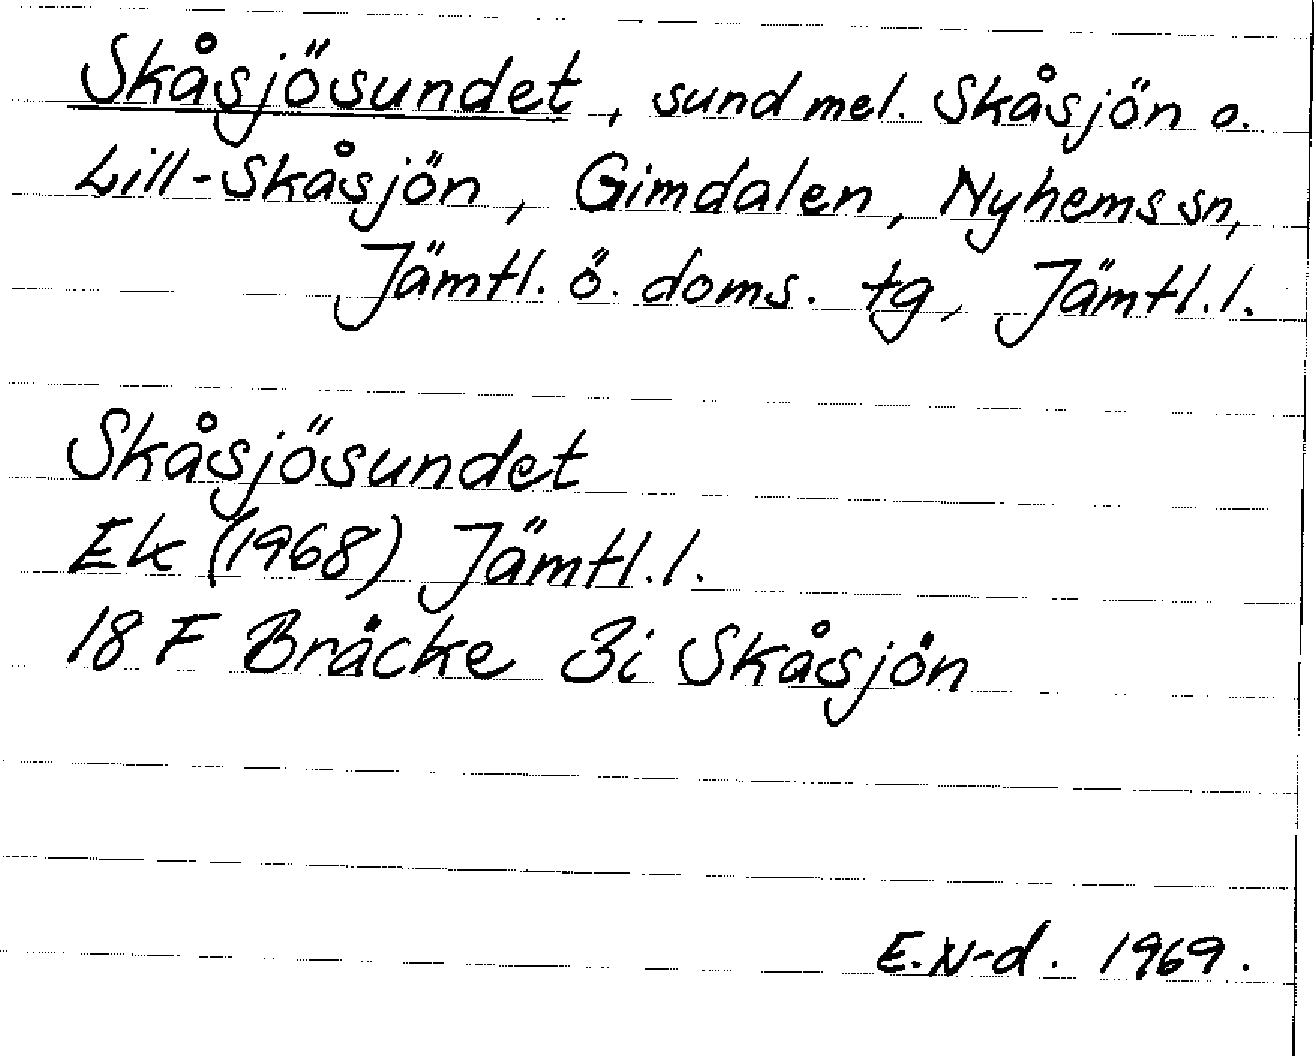 Skåsjösundet, sund mel. Skåsjön o.
Lill-Skåsjön, Gimdalen, Nyhems sn,
Jämtl. ö. doms. tg, Jämtl. l.
Skåsjösundet
Ek (1968) Jämtl. l.
18 F Bräcke 3i Skåsjön
E. N-d. 1969.